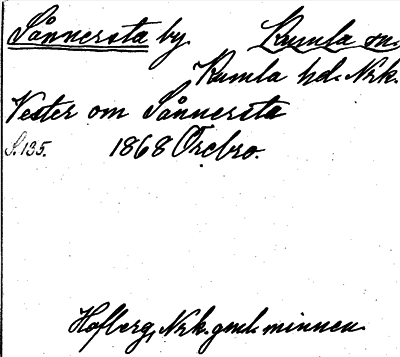 Sånnersta by Kumla sn.
Kumla hd. Nrk.
Vester om Sånnersta
S. 135. 1868 Örebro.
Hofberg, Nrk. gml. minnen